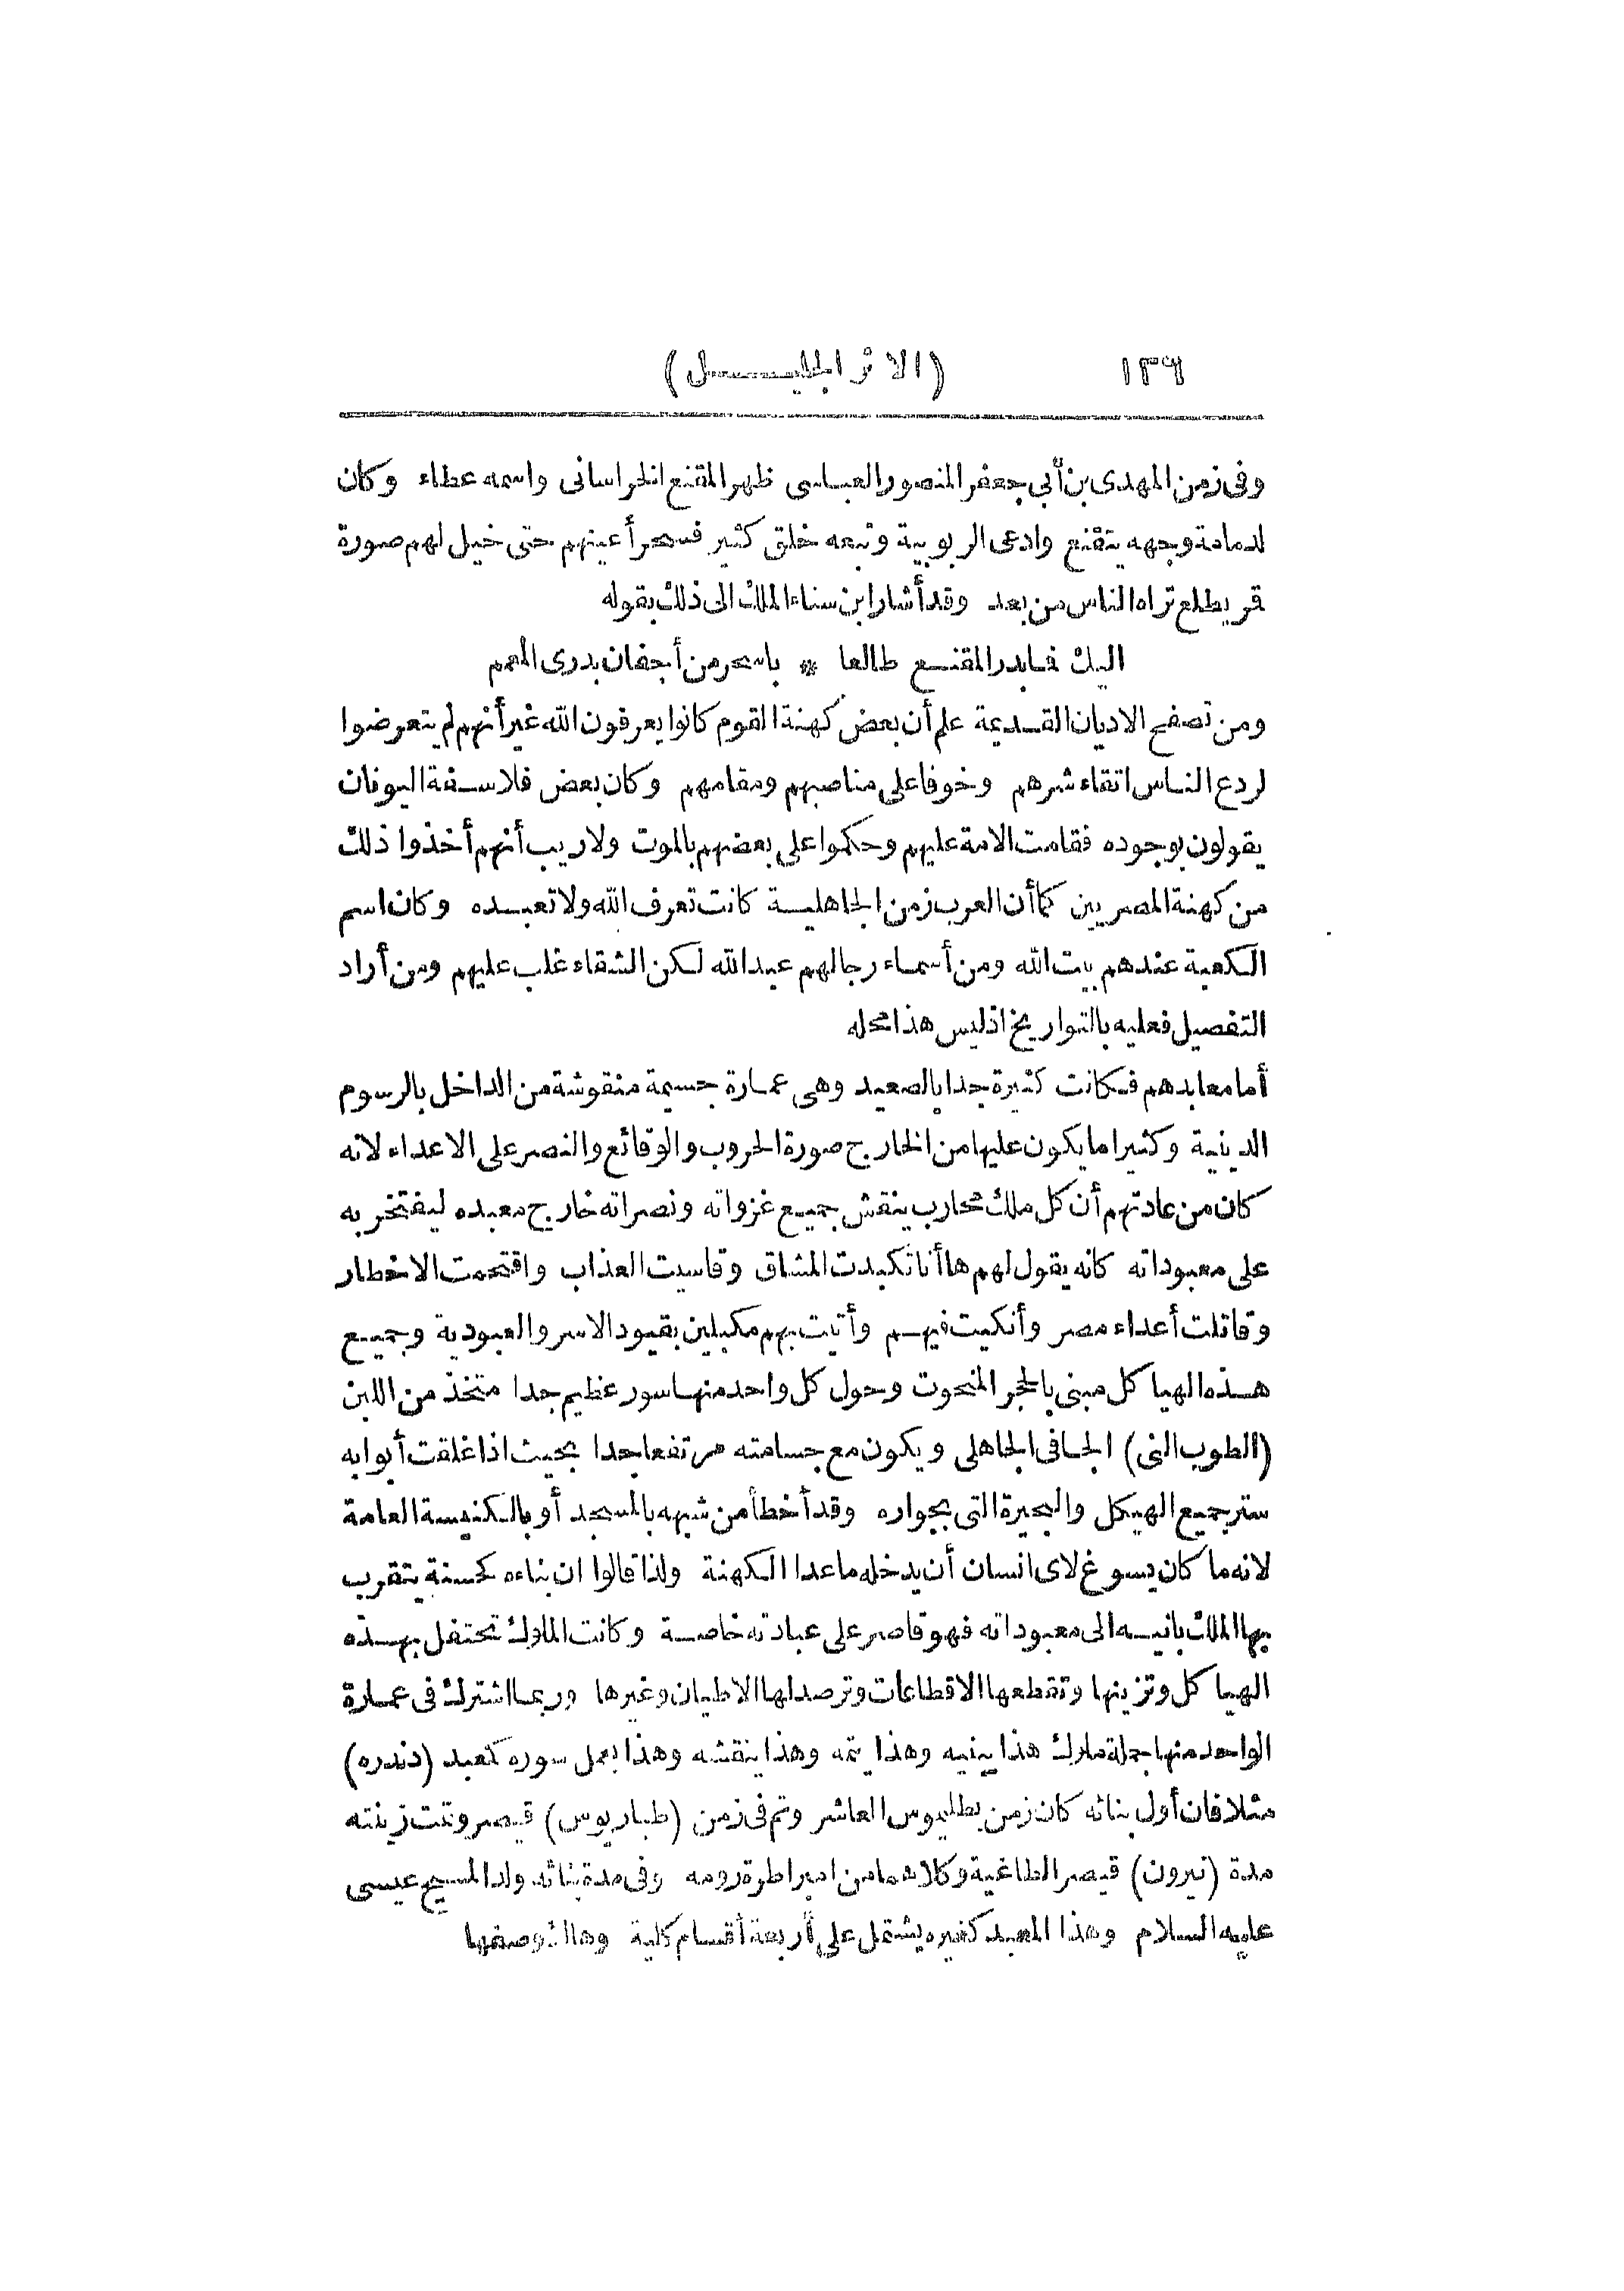 ١٣٦ (الاثر الجليل)
وفى زمن المهدى بن أبى جعفر المنصور العباسى ظهر المقنع الخراسانى واسمه عطاء وكان
لدمامة وجهه يتقنع وادعى الربوبية وتبعه خلق كثير فسحر أعينهم حتى خيل لهم صورة
قمر يطلع تراه الناس من بعد وقد أشار ابن سناء الملك الى ذلك بقوله
اليك فما بدر المقنع طالعا * باسحر من أجفان بدرى المعمم
ومن تصفح الاديان القديمة علم أن بعض كهنة القوم كانوا يعرفون الله غير أنهم لم يتعرضوا
لردع الناس اتقاء شرهم وخوفا على مناصبهم ومقامهم وكان بعض فلاسفة اليونان
يقولون بوجوده فقامت الامة عليهم وحكموا على بعضهم بالموت ولاريب أنهم أخذوا ذلك
من كهنة المصريين كما أن العرب زمن الجاهلية كانت تعرف الله ولا تعبده وكان اسم
الكعبة عندهم بيت الله ومن أسماء رجالهم عبد الله لكن الشقاء غلب عليهم ومن أراد
التفصيل فعليه بالتواريخ اذ ليس هذا محله
أما معابدهم فكانت كثيرة جدا بالصعيد وهى عمارة جسيمة منقوشة من الداخل بالرسوم
الدينية وكثيرا ما يكون عليها من الخارج صورة الحروب والوقائع والنصر على الاعداء لانه
كان من عادتهم أن كل ملك محارب ينقش جميع غزواته ونصراته خارج معبده ليفتخر به
على معبوداته كانه يقول لهم ها أنا تكبدت المشاق وقاسيت العذاب واقتحمت الاخطار
وقاتلت أعداء مصر وأنكيت فيهم وأتيت بهم مكبلين بقيود الاسر والعبودية وجميع
هذه الهياكل مبنى بالحجر المنحوت وحول كل واحد منها سور عظيم جدا متخذ من اللبن
(الطوب النى) الجافى الجاهلى ويكون مع جسامته مرتفعا جدا بحيث اذا غلقت أبوابه
ستر جميع الهيكل والبحيرة التى بجواره وقد أخطأ من شبهه بالمسجد أو بالكنيسة العامة
لانه ما كان يسوغ لاى انسان أن يدخله ماعدا الكهنة ولذا قالوا ان بناءه كحسنة يتقرب
بها الملك بانيه الى معبوداته فهو قاصر على عبادته خاصة وكانت الملوك تحتفل بهذه
الهياكل وتزينها وتقطعها الاقطاعات وترصد لها الاطيان وغيرها وربما اشترك فى عمارة
الواحد منها جملة ملوك هذا يبنيه وهذا يتمه وهذا ينقشه وهذا يعمل سوره كمعبد (دندره)
مثلا فان أول بنائه كان زمن بطليوس العاشر وتم فى زمن (طباريوس) قيصر وتمت زينته
مدة (نيرون) قيصر الطاغية وكلاهما من امبراطرة رومه وفى مدة بنائه ولد المسيح عيسى
عليه السلام وهذا المعبد كغيره يشتمل على أربعة أقسام كلية وهاك وصفها